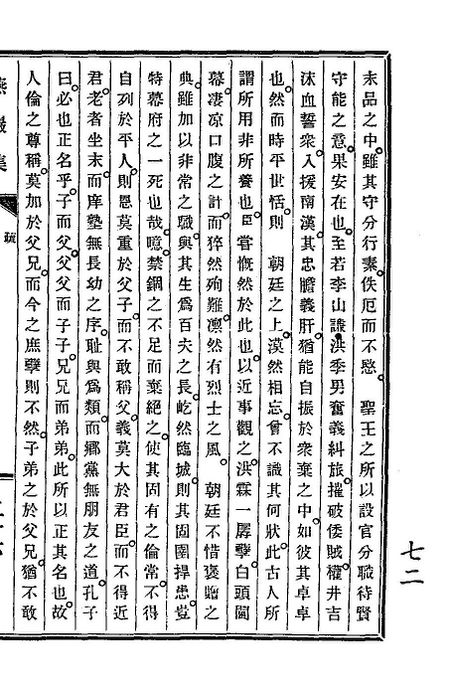 未品之中。雖其守分行素。佚厄而不愍。 聖王之所以設官分職待賢
守能之意。果安在也。至若李山謙洪季男奮義糾旅。摧破倭賊。權井吉
沫血誓衆。入援南漢。其忠膽義肝。猶能自振於衆棄之中。如彼其卓卓
也。然而時平世恬。則 朝廷之上。漠然相忘。曾不識其何狀。此古人所
謂所用非所養也。臣甞慨然於此也。以近事觀之。洪霖一孱孽。白頭閫
幕。凄凉口腹之計。而猝然殉難。凛然有烈士之風。 朝廷不惜褒贈之
典。雖加以非常之職。與其生爲百夫之長。屹然臨城。則其固圉捍患。豈
特幕府之一死也哉。噫。禁錮之不足而棄絶之。使其固有之倫常。不得
自列於平人。則恩莫重於父子。而不敢稱父。義莫大於君臣。而不得近
君。老者坐末。而庠塾無長幼之序。恥與爲類。而鄕黨無朋友之道。孔子
曰。必也正名乎。子而父父。父而子子。兄兄而弟弟。此所以正其名也。故
人倫之尊稱。莫加於父兄。而今之庶孽則不然。子弟之於父兄。猶不敢
燕巖集
疏
七二